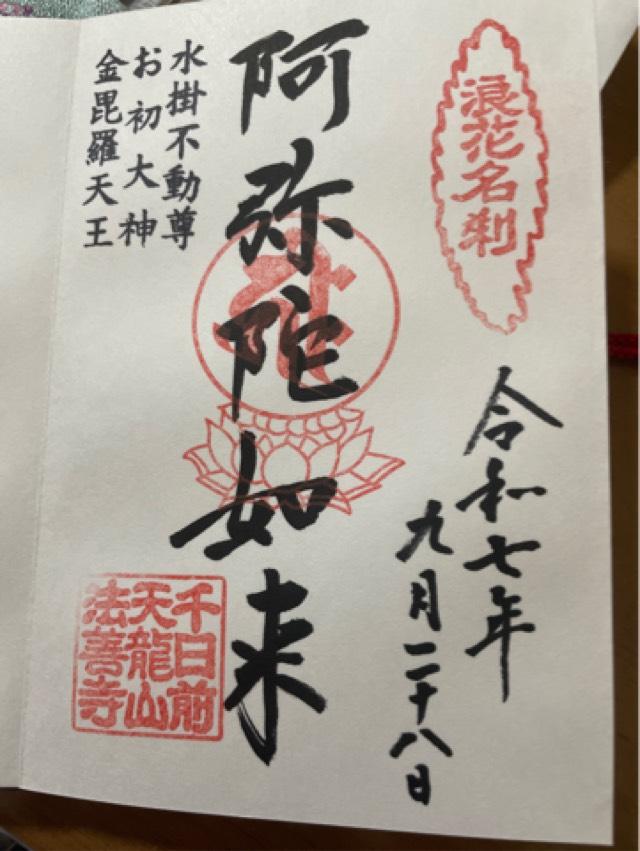 浪花名刹
令和七年
九月二十八日
阿弥陀如来
水掛不動尊
お初大神
金毘羅天王
千日前
天龍山
法善寺